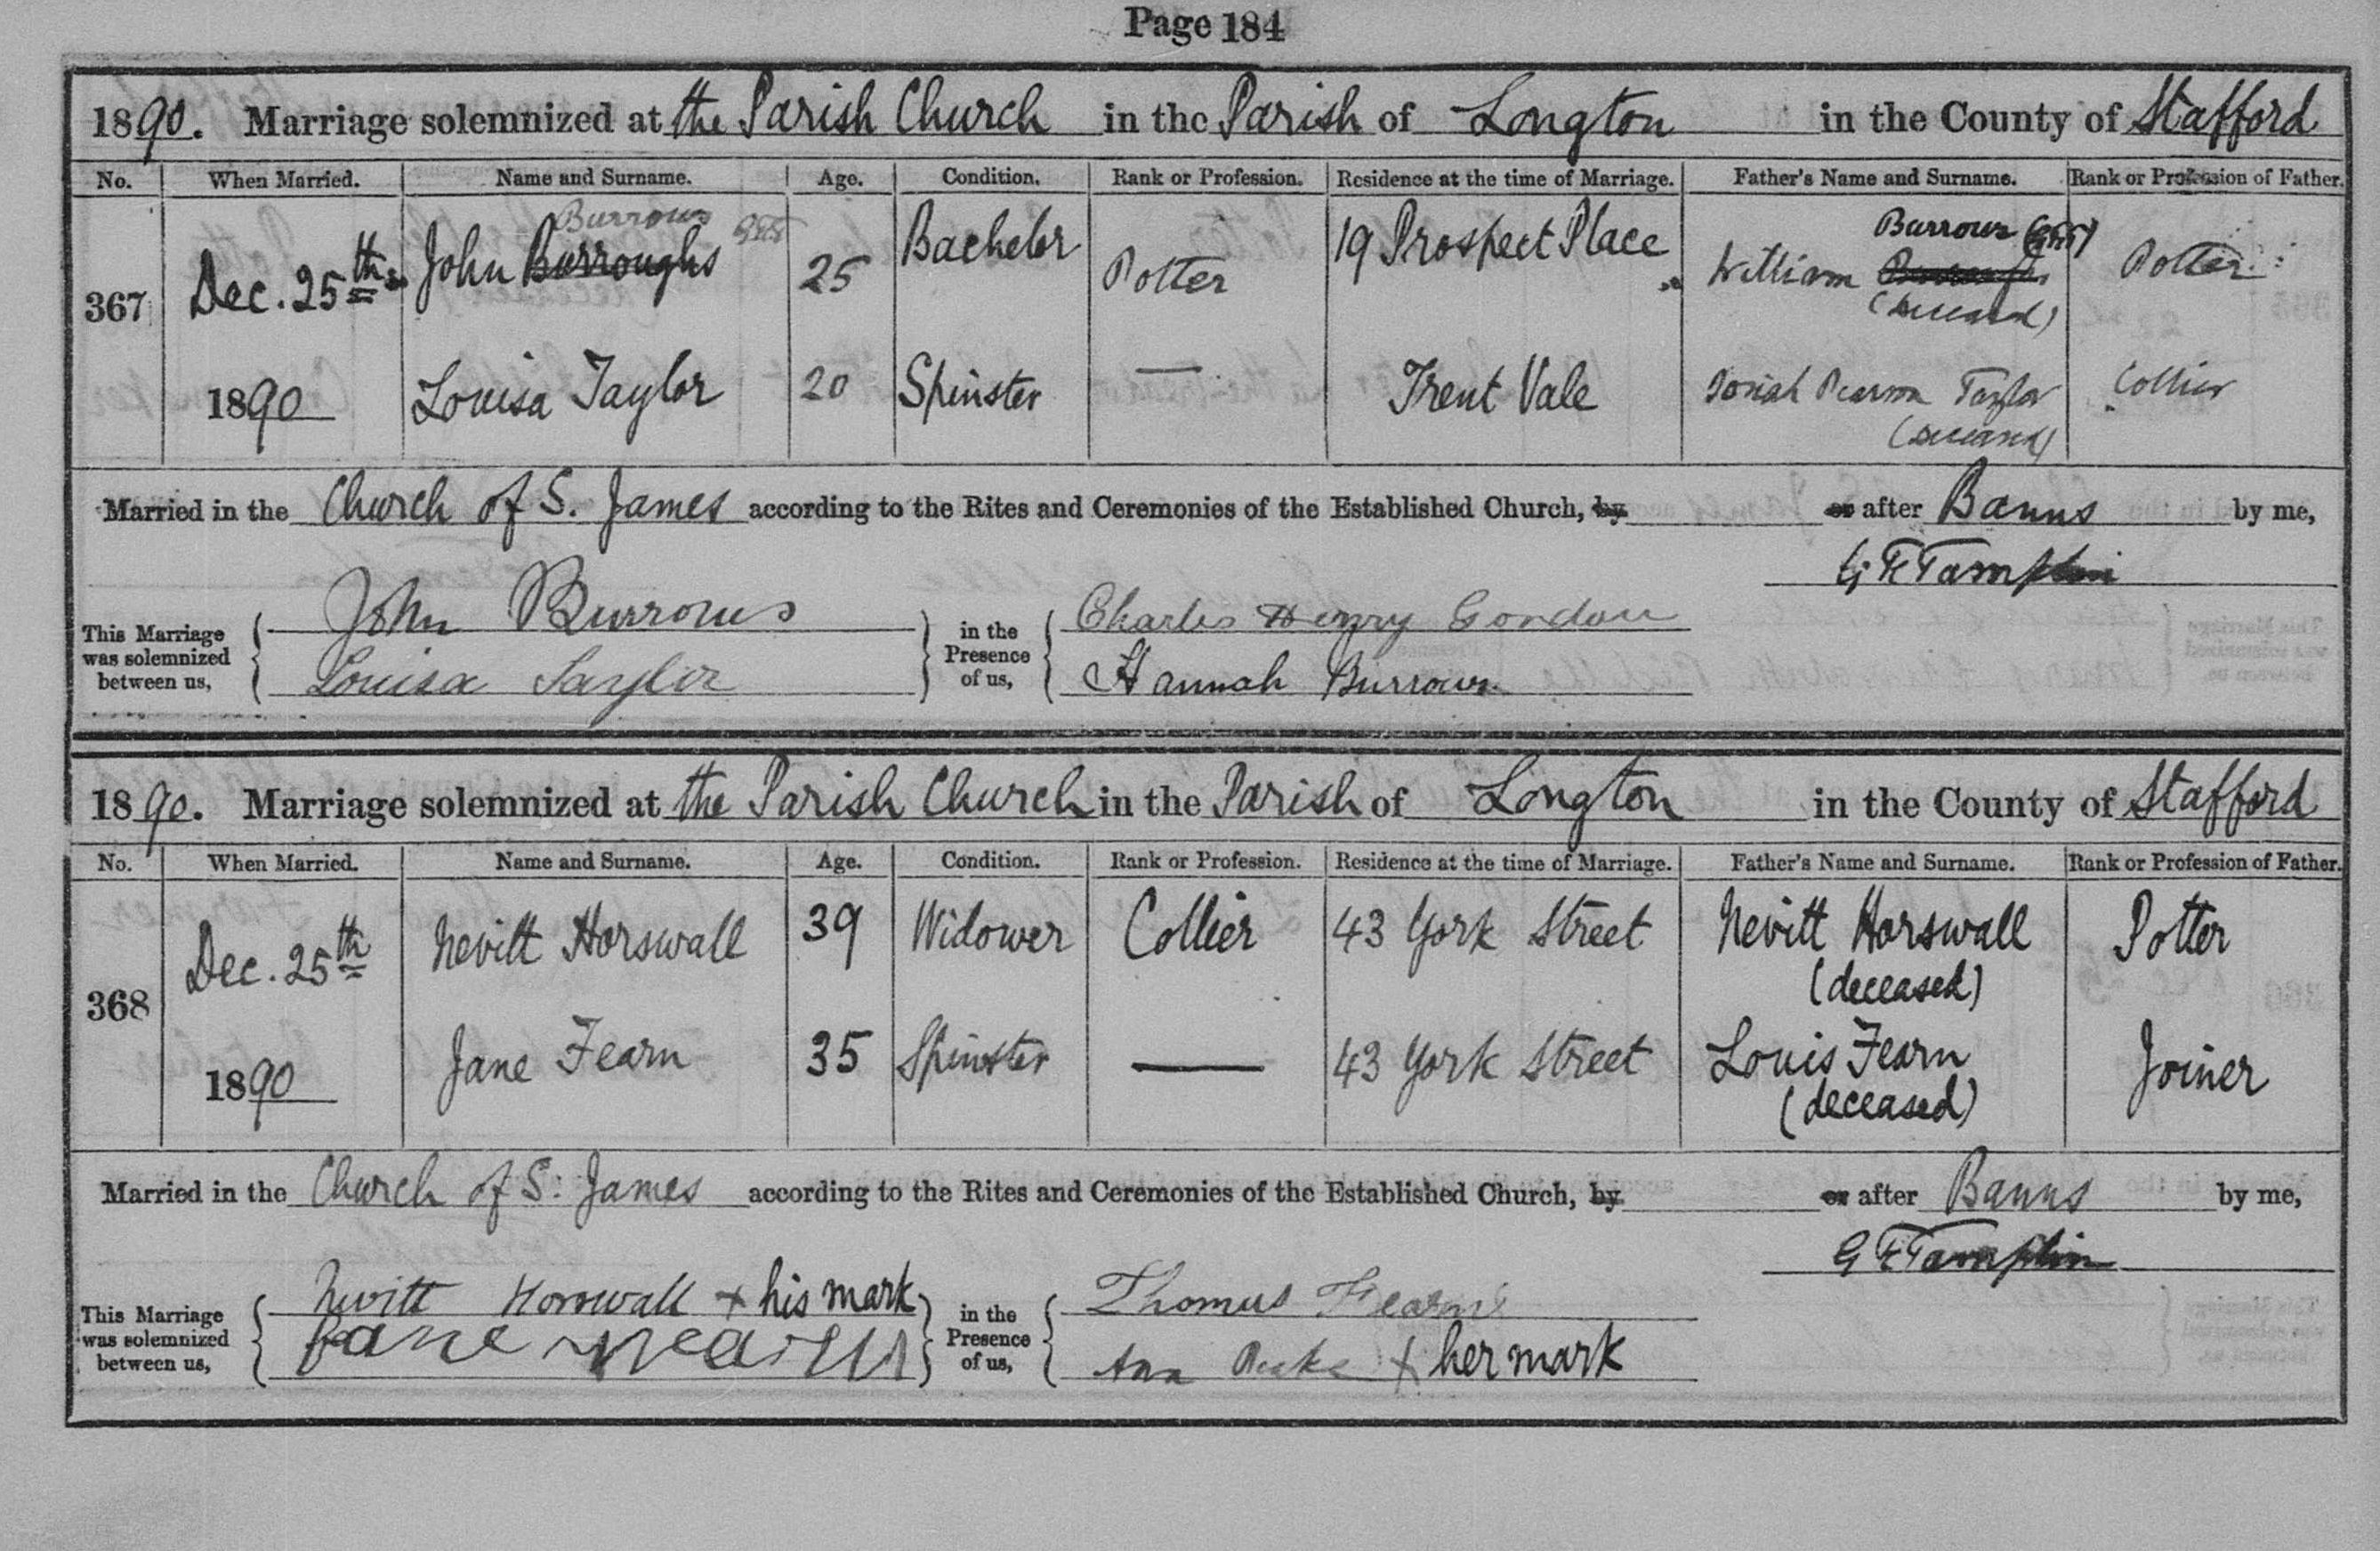 Page 184
1890. Marriage solemnized at the Parish Church in the Parish of Longton in the County of Stafford
No. When Married. Name and Surname. Age. Condition. Rank or Profession. Residence at the time of Marriage. Father's Name and Surname. Rank or Profession of Father.
Burrows Burrows
367 Dec. 25th John Burroughs 25 Bachelor Potter 19 Prospect Place William Potter
(deceased)
1890 Louisa Taylor 20 Spinster — Trent Vale Josiah Pearson Taylor Collier
(deceased)
Married in the Church of S. James according to the Rites and Ceremonies of the Established Church, by or after Banns by me,
G F Tamplin
This Marriage was solemnized between us, John Burrows in the Presence of us, Charles Henry Gordon
Louisa Taylor Hannah Burrows.
1890. Marriage solemnized at the Parish Church in the Parish of Longton in the County of Stafford
No. When Married. Name and Surname. Age. Condition. Rank or Profession. Residence at the time of Marriage. Father's Name and Surname. Rank or Profession of Father.
368 Dec. 25th Nevitt Horswall 39 Widower Collier 43 York Street Nevitt Horswall Potter
(deceased)
1890 Jane Fearn 35 Spinster — 43 York Street Louis Fearn Joiner
(deceased)
Married in the Church of S. James according to the Rites and Ceremonies of the Established Church, by or after Banns by me,
G F Tamplin
This Marriage was solemnized between us, Nevitt Horswall + his mark in the Presence of us, Thomas Fearn
Jane Ann + her mark